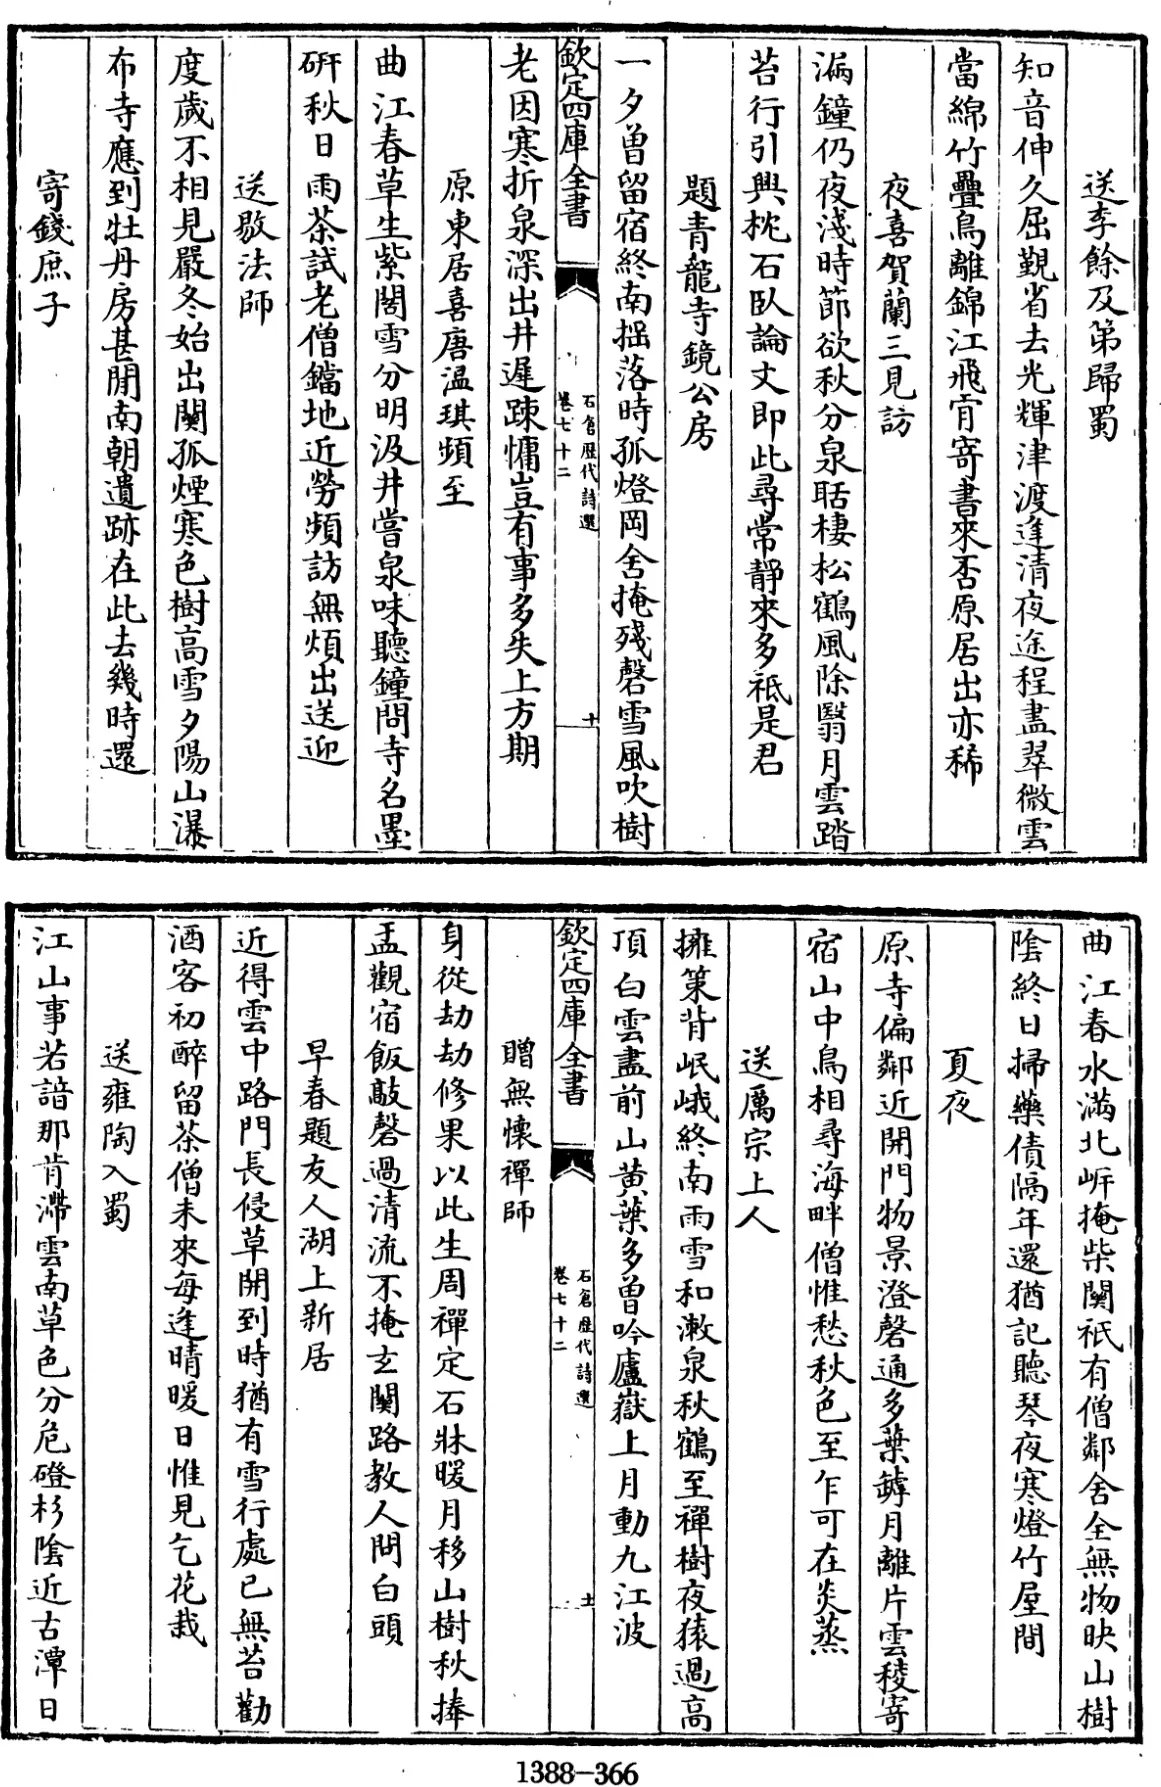 送李餘及第歸蜀
知音伸久屈覲省去光輝津渡逢清夜途程盡翠微雲
當綿竹疊鳥離錦江飛肎寄書來否原居出亦稀
夜喜賀蘭三見訪
漏鐘仍夜淺時節欲秋分泉聒棲松鶴風除翳月雲踏
苔行引興枕石臥論文即此尋常靜來多祗是君
題青龍寺鏡公房
一夕曾留宿終南搖落時孤燈岡舍掩殘磬雪風吹樹
欽定四庫全書
石倉歷代詩選
卷七十二
十
老因寒折泉深出井遲疎慵豈有事多失上方期
原東居喜唐溫琪頻至
曲江春草生紫閣雪分明汲井嘗泉味聽鐘問寺名墨
硏秋日雨茶試老僧鐺地近勞頻訪無煩出送迎
送敡法師
度歲不相見嚴冬始出關孤煙寒色樹高雪夕陽山瀑
布寺應到牡丹房甚閒南朝遺跡在此去幾時還
寄錢庶子
曲江春水滿北岸掩柴關祇有僧鄰舍全無物映山樹
陰終日掃藥債隔年還猶記聽琴夜寒燈竹屋間
夏夜
原寺偏鄰近開門物景澄磬通多葉罅月離片雲稜寄
宿山中鳥相尋海畔僧惟愁秋色至乍可在炎蒸
送厲宗上人
擁策背岷峨終南雨雪和漱泉秋鶴至禪樹夜猿過高
頂白雲盡前山黃葉多曾吟廬嶽上月動九江波
欽定四庫全書
石倉歷代詩選
卷七十二
十一
贈無懷禪師
身從劫劫修果以此生周禪定石牀暖月移山樹秋捧
盂觀宿飯敲磬過清流不掩玄關路教人問白頭
早春題友人湖上新居
近得雲中路門長侵草開到時猶有雪行處已無苔勸
酒客初醉留茶僧未來每逢晴暖日惟見乞花栽
送雍陶入蜀
江山事若諳那肯滯雲南草色分危磴杉陰近古潭日
1388-366